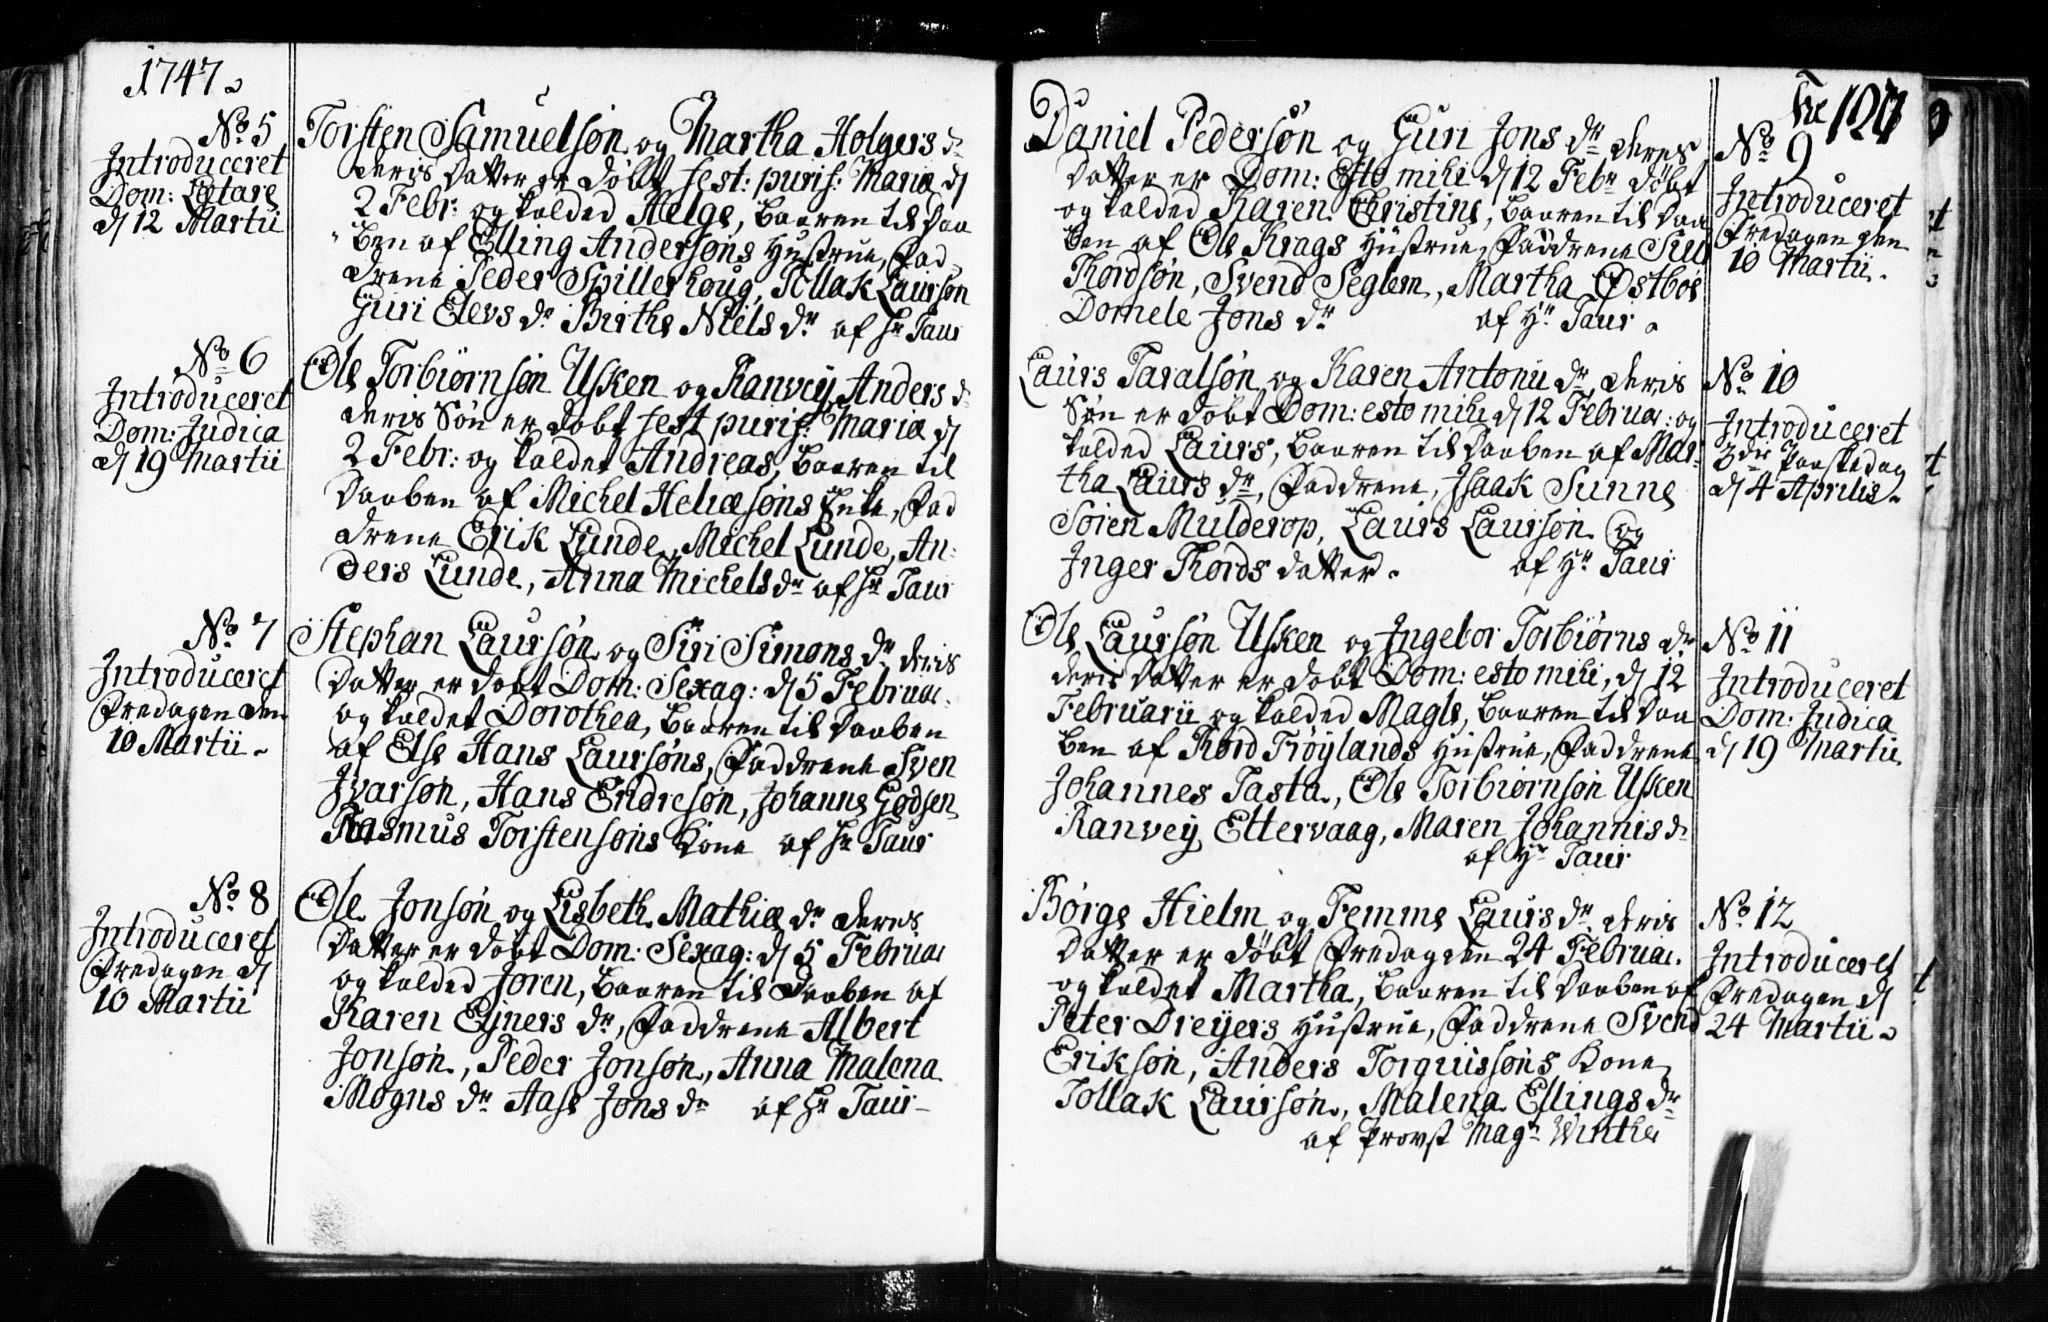 1747.
No 5
Introduceret
Dom: Lætare
d 12 Martii
Torsten Samuelsøn og Martha Holgers dr
deris Datter er døbt fest: purif: Mariæ d
2 Febr: og kalded Helge, baaren til Daa
ben af Elling Andersøns Hustrue, Fad-
drene Peder Spillerhoug, Tollak Laursøn
Guri Elevs dr Birthe Niels dr af Hr Taur
No 6
Introduceret
Dom: Judica
d 19 Martii
Ole Torbiørnsøn Usken og Ranvey Anders dr
deris Søn er døbt fest purif: Mariæ d
2 Febr: og kaldet Andreas, baaren til
Daaben af Michel Heliæsøns Enke, Fad
drene Erik Lunde, Michel Lunde, An-
ders Lunde, Anna Michels dr af Hr Taur
No 7
Introduceret
Fredagen den
10 Martii
Stephan Laursøn og Siri Simons dr deris
Datter er døbt Dom: Sexag: d 5 Februar.
og kaldet Dorothea, baaren til Daaben
af Else Hans Laursøns, Faddrene Sven
Ivarsøn, Hans Endresøn, Johanne Godsen
Rasmus Torstensøns Kone af Hr Taur
No 8
Introduceret
Fredagen d
10 Martii
Ole Jonsøn og Lisbeth Mathiæ dr deres
Datter er døbt Dom: Sexag: d 5 Februar
og kalded Joren, baaren til Daaben af
Karen Ejners dr, Faddrene Albert
Jonsøn, Peder Jonsøn, Anna Malena
Mogns dr Aase Jons dr af Hr Taur
127
No 9
Introduceret
Fredagen den
10 Martii.
Daniel Pedersøn og Guri Jons dr deres
Datter er Dom: Esto mihi d 12 Febr døbt
og kalded Karen Christine, baaren til Daa
ben af Ole Krags Hustrue, Faddrene Siur
Thordsøn, Svend Seglem, Martha Østbøe
Domele Jons dr af Hr Taur.
No 10
Introduceret
3die Paaskedag
d 4 Aprilis
Laurs Taralsøn og Karen Antonii dr, deris
Søn er døbt Dom: esto mihi d 12 Februar: og
kalded Laurs, baaren til Daaben af Mar-
tha Laurs dr, Faddrene, Isaak Sunne
Sören Mulderop, Laurs Laursøn og
Inger Thords datter. af Hr Taur
No 11
Introduceret
Dom: Judica
d 19 Martii
Ole Laursøn Usken og Ingebor Torbiørns dr
deris Datter er døbt Dom: esto mihi, d 12
Februarii og kalded Magle, baaren til Daa
ben af Thord Frøylands Hustrue, Faddrene
Johannes Tasta, Ole Torbiørnsøn Usken
Ranvey Ettervaag, Maren Johannis dr
af Hr Taur
No 12
Introduceret
Fredagen d
24 Martii
Børge Hielm og Femme Laurs dr. deris
Datter er døbt Fredag den 24 Februar.
og kaldet Martha, baaren til Daaben af
Peter Dreyers Hustrue, Faddrene Svend
Eriksøn, Anders Torguissøns Kone
Tollak Laursøn, Malena Ellings dr
af Provst Magr Winther